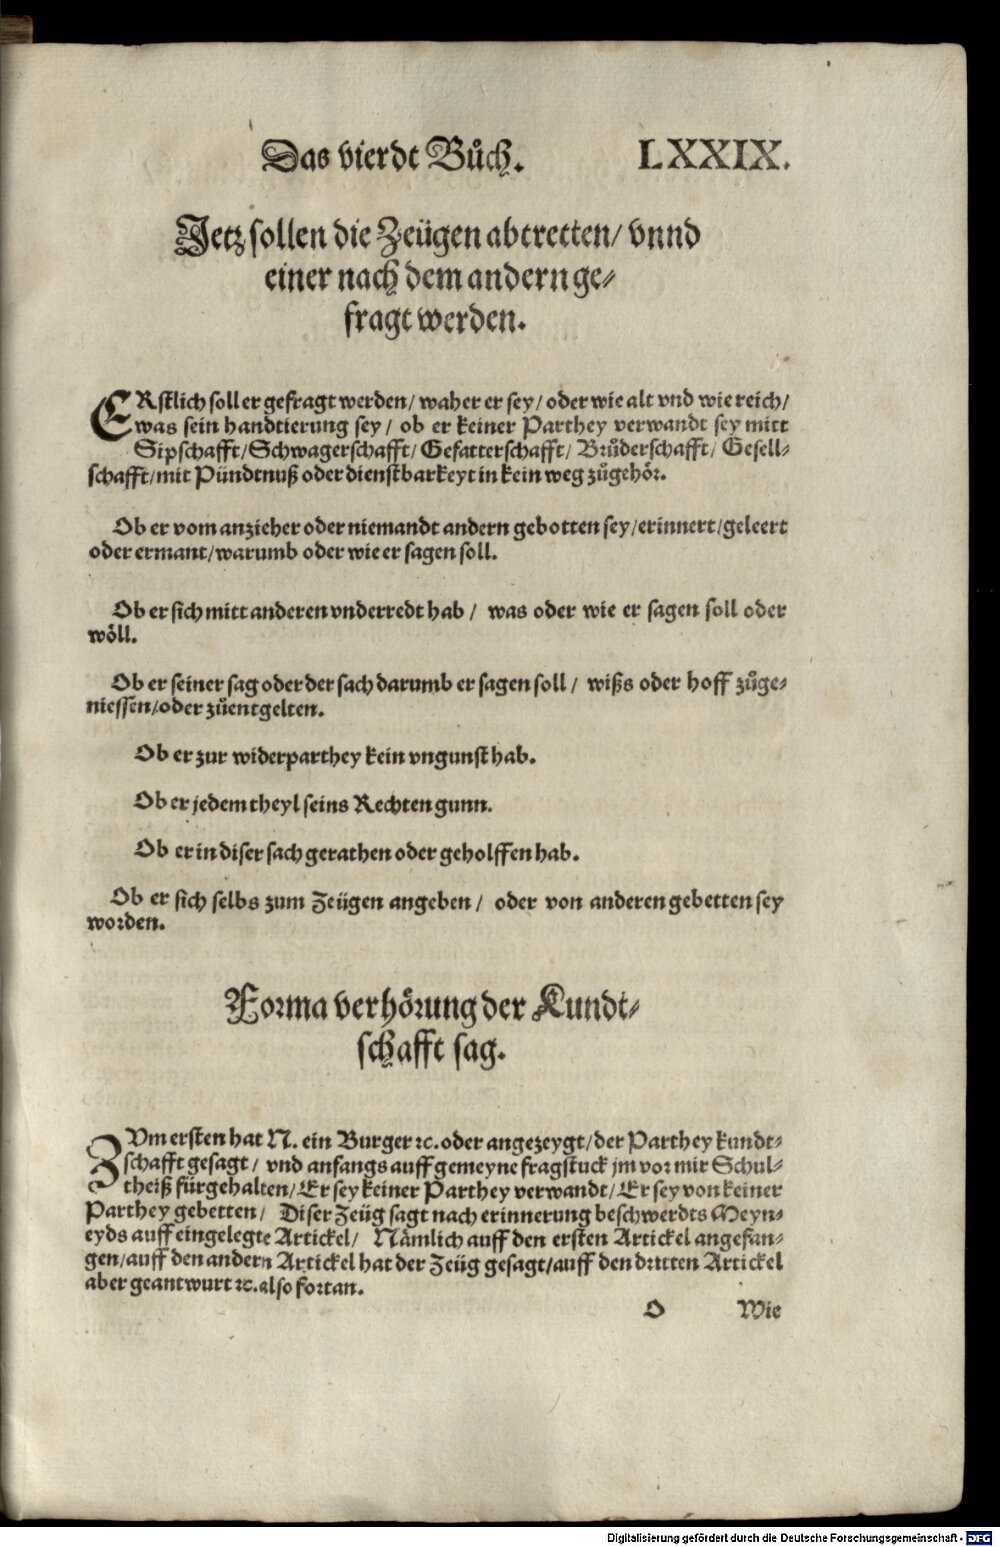 Das vierdt Bůch. LXXIX.
Jetz sollen die Zeügen abtretten/ vnnd
einer nach dem andern ge⸗
fragt werden.
ERstlich soll er gefragt werden/ waher er sey/ oder wie alt vnd wie reich/
was sein handtierung sey/ ob er keiner Parthey verwandt sey mitt
Sipschafft/ Schwagerschafft/ Gefatterschafft/ Brůderschafft/ Gesell⸗
schafft/ mit Pündtnuß oder dienstbarkeyt in kein weg zůgehör.
Ob er vom anzieher oder niemandt andern gebotten sey/ erinnert/ geleert
oder ermant/ warumb oder wie er sagen soll.
Ob er sich mitt anderen vnderredt hab/ was oder wie er sagen soll oder
wöll.
Ob er seiner sag oder der sach darumb er sagen soll/ wißs oder hoff zůge⸗
niessen/ oder zůentgelten.
Ob er zur widerparthey kein vngunst hab.
Ob er jedem theyl seins Rechten gunn.
Ob er in diser sach gerathen oder geholffen hab.
Ob er sich selbs zum Zeügen angeben/ oder von anderen gebetten sey
worden.
Forma verhörung der Kundt⸗
schafft sag.
ZVm ersten hat N. ein Burger ꝛc. oder angezeygt/ der Parthey kundt⸗
schafft gesagt/ vnd anfangs auff gemeyne fragstuck jm vor mir Schul⸗
theiß fürgehalten/ Er sey keiner Parthey verwandt/ Er sey von keiner
Parthey gebetten/ Diser Zeüg sagt nach erinnerung beschwerdts Meyn⸗
eyds auff eingelegte Artickel/ Nämlich auff den ersten Artickel angefan⸗
gen/ auff den andern Artickel hat der Zeüg gesagt/ auff den dritten Artickel
aber geantwurt ꝛc. also fortan.
O Wie
Digitalisierung gefördert durch die Deutsche Forschungsgemeinschaft - DFG